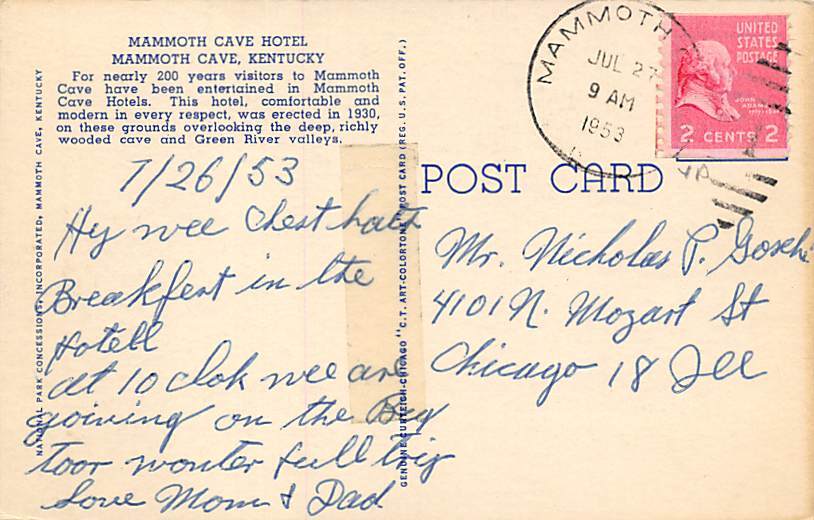 MAMMOTH CAVE HOTEL
MAMMOTH CAVE, KENTUCKY
For nearly 200 years visitors to Mammoth
Cave have been entertained in Mammoth
Cave Hotels. This hotel, comfortable and
modern in every respect, was erected in 1930,
on these grounds overlooking the deep, richly
wooded cave and Green River valleys.
7/26/53
Hy wee Chest hath
Breakfert in the
Hotell
at 10 clok wee are
goiving on the Big
toor wonter full trip
Love Mom & Dad
NATIONAL PARK CONCESSIONS, INCORPORATED, MAMMOTH CAVE, KENTUCKY
GENUINE CURTEICH-CHICAGO "C.T. ART-COLORTONE" POST CARD (REG. U.S. PAT. OFF.)
POST CARD
MAMMOTH
JUL 27
9 AM
1953
UNITED
STATES
POSTAGE
JOHN
ADAMS
2 CENTS 2
Mr. Nicholas P. Gosche
4101 N. Mozart St
Chicago 18 Ill